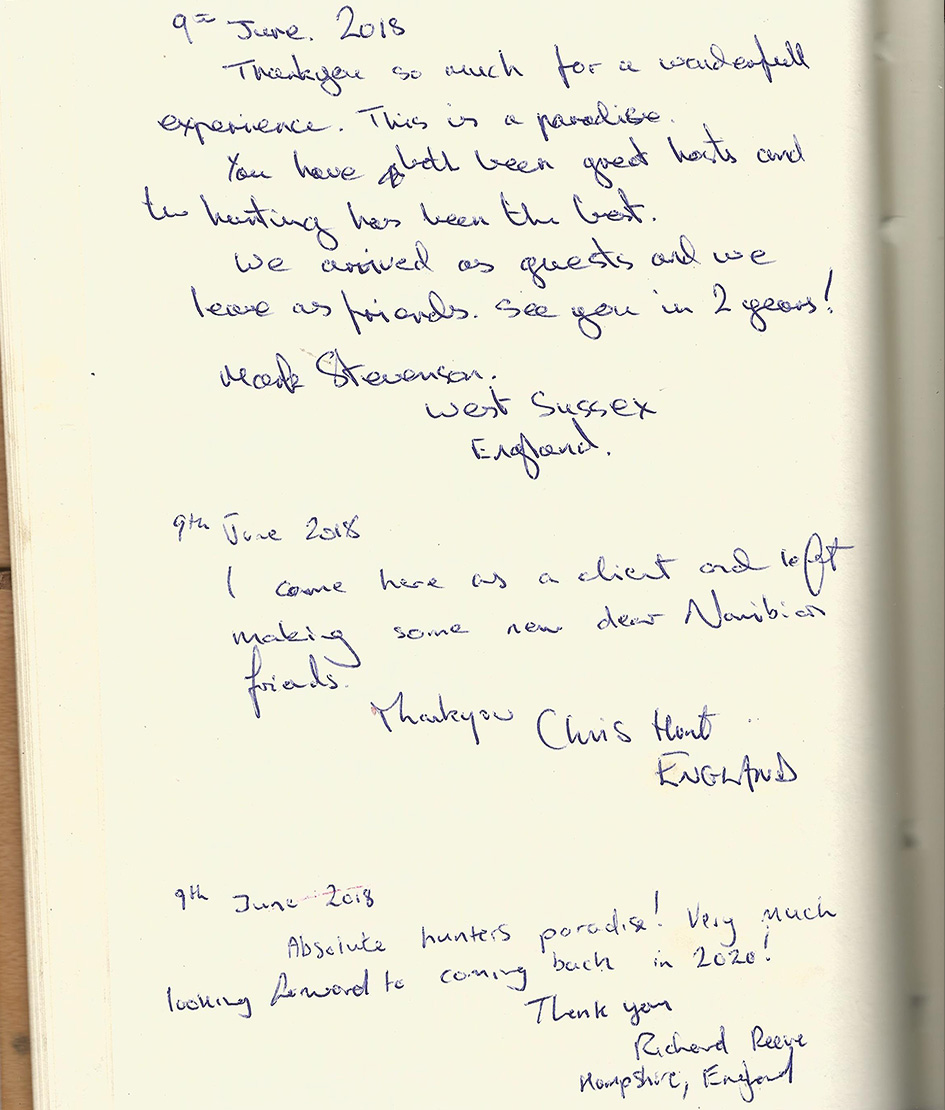 9th June. 2018
Thankyou so much for a wonderfull
experience. This is a paradise.
You have both been great hosts and
the hunting has been the best.
We arrived as guests and we
leave as friends. See you in 2 years!
Mark Stevenson.
West Sussex
England.
9th June 2018
I came here as a client and left
making some new dear Namibian
friends.
Thankyou Chris Hunt
ENGLAND
9th June 2018
Absolute hunters paradise! Very much
looking forward to coming back in 2020!
Thank you
Richard Reeve
Hampshire, England